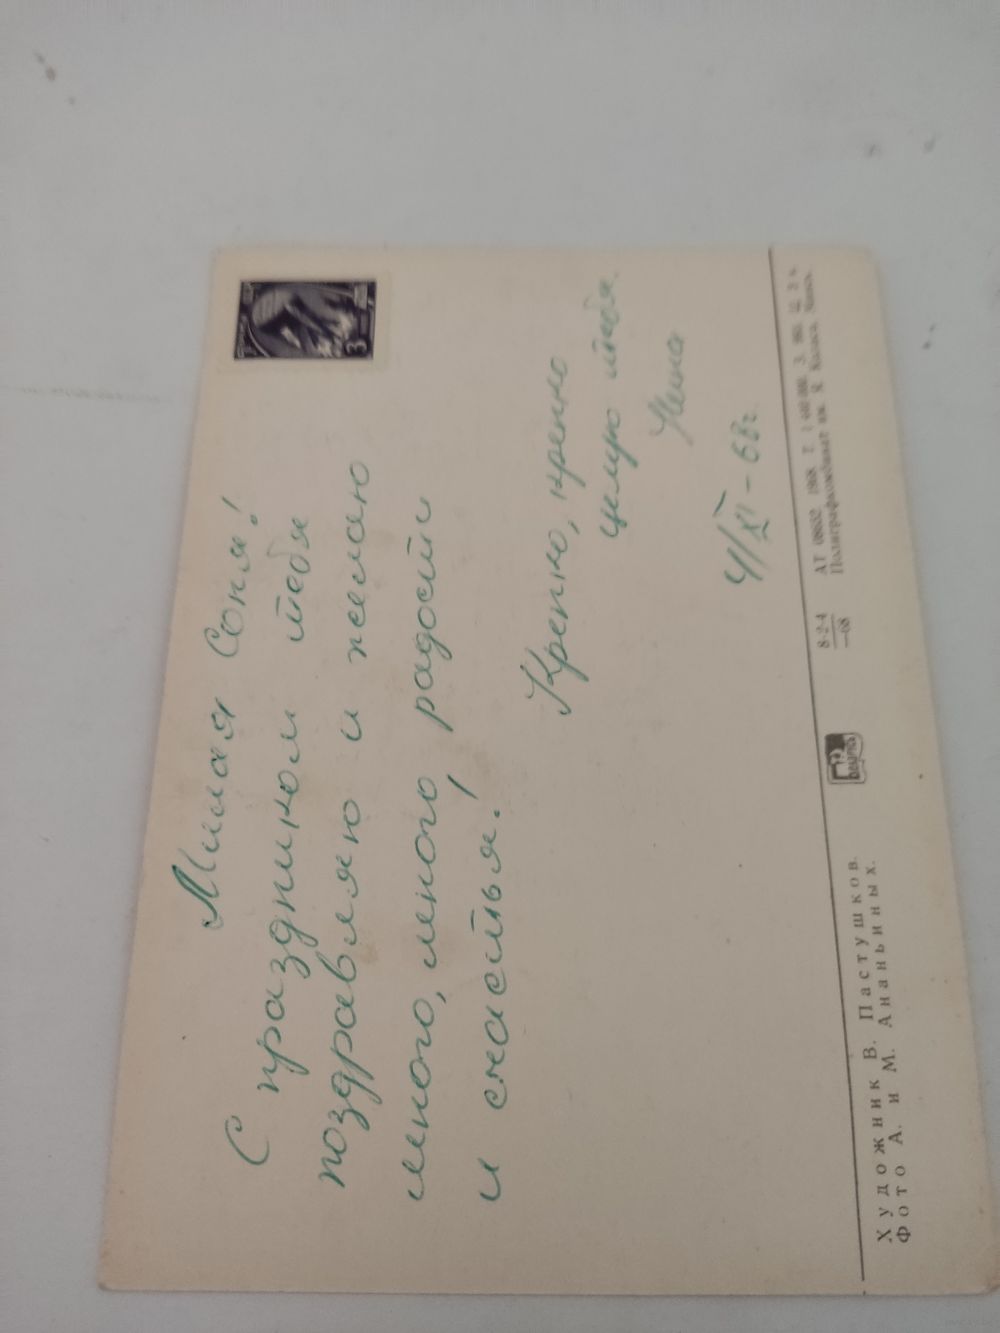 Милая Соня!
С праздником тебя
поздравляю и желаю
много, много радости
и счастья!
Крепко, крепко
целую тебя.
Нина
4/XI-68г.
Художник В. Пастушков.
Фото А. и М. Ананьиных.
8-2-4
—68
АТ 08652 1968 Т. З. Ц. 3 к.
Полиграфкомбинат им. Я. Коласа, Минск.
3